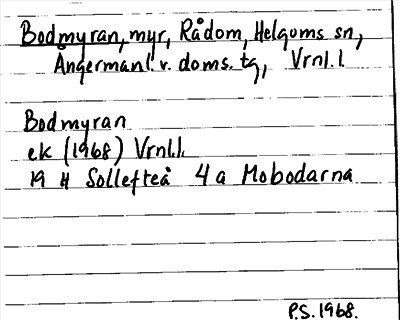 Bodmyran, myr, Rådom, Helgums sn,
Ångermanl. v. doms. tg, Vrnl. l.
Bodmyran
ek (1968) Vrnl.l.
19 H Sollefteå 4 a Mobodarna
P.S. 1968.